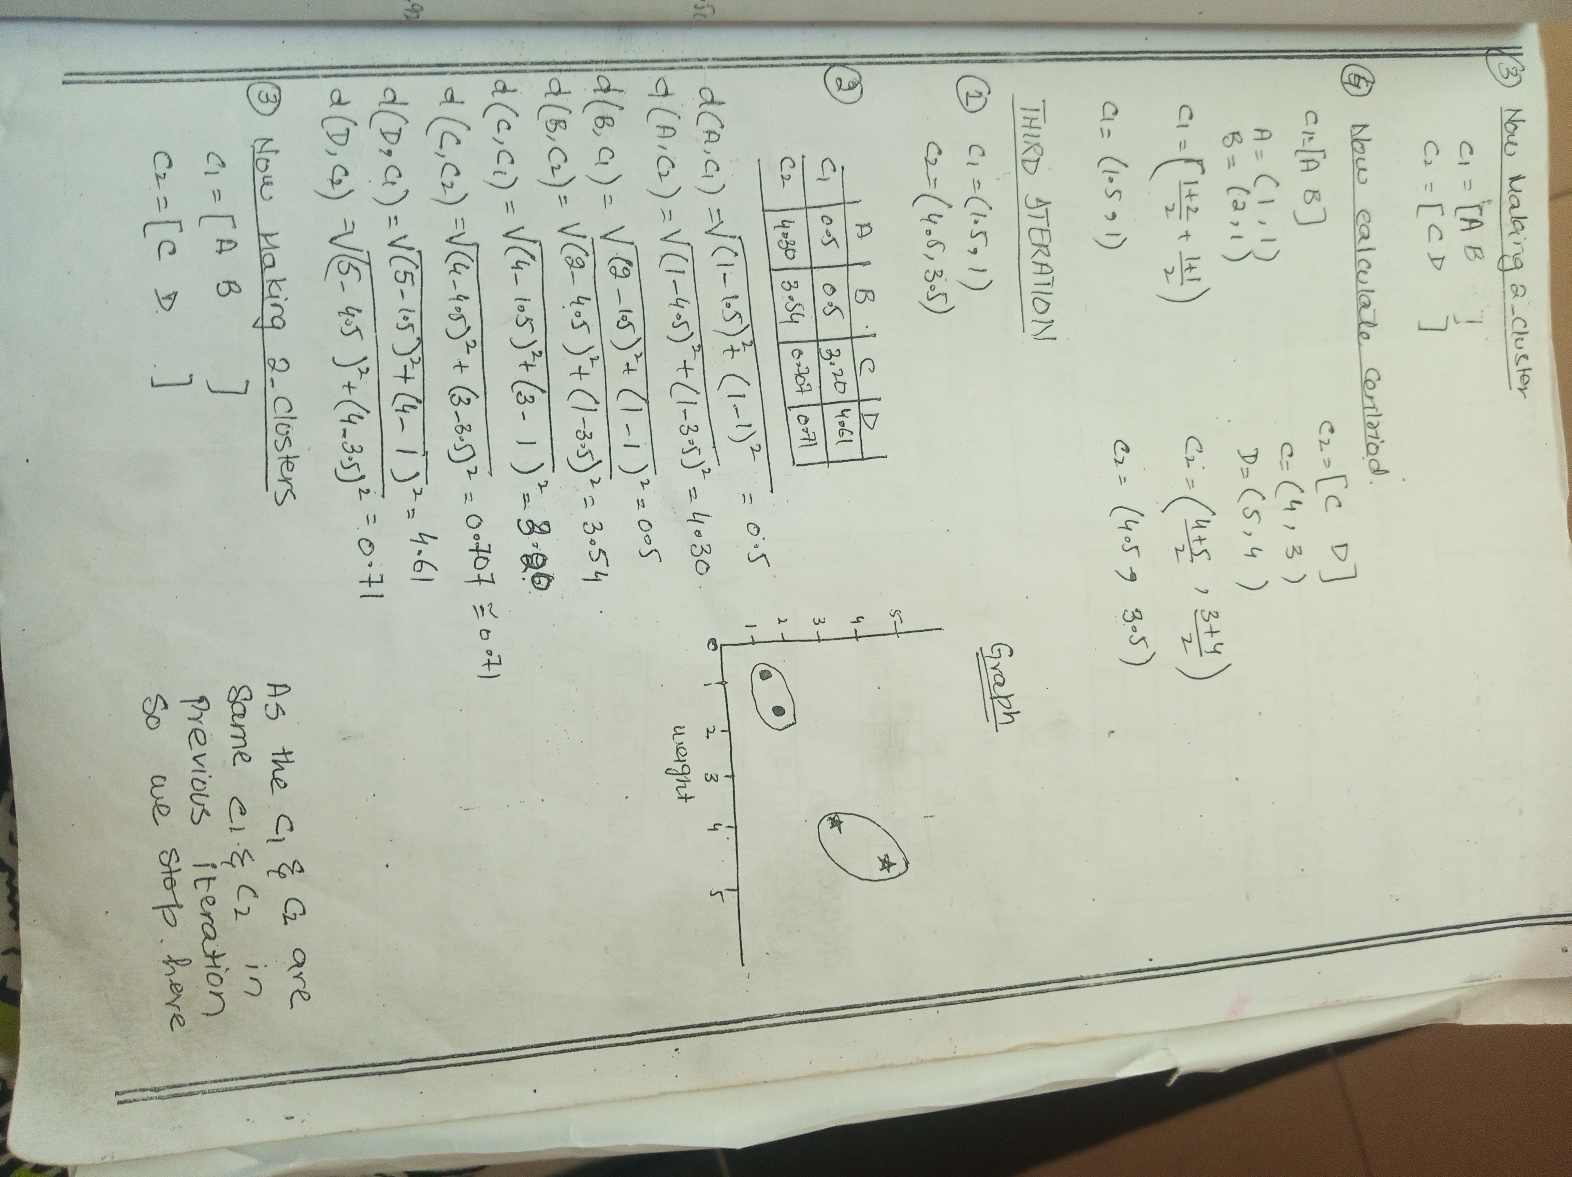 ③ Now Making 2-Cluster
C1 = [A B ]
C2 = [C D ]
④ Now calculate Centriod.
C1=[A B]
A = (1, 1)
B = (2, 1)
C1 = [1+2/2 + 1+1/2)
C1 = (1.5, 1)
C2 = [C D]
C = (4, 3)
D = (5, 4)
C2 = (4+5/2, 3+4/2)
C2 = (4.5, 3.5)
THIRD ITERATION
① C1 = (1.5, 1)
C2 = (4.5, 3.5)
② A B C D
C1 0.5 0.5 3.20 4.61
C2 4.30 3.54 0.707 0.71
d(A,C1) = √(1-1.5)² + (1-1)² = 0.5
d(A,C2) = √(1-4.5)² + (1-3.5)² = 4.30
d(B,C1) = √(2-1.5)² + (1-1)² = 0.5
d(B,C2) = √(2-4.5)² + (1-3.5)² = 3.54
d(C,C1) = √(4-1.5)² + (3-1)² =
d(C,C2) = √(4-4.5)² + (3-3.5)² = 0.707 ≅ 0.71
d(D,C1) = √(5-1.5)² + (4-1)² = 4.61
d(D,C2) = √(5-4.5)² + (4-3.5)² = 0.71
③ Now Making 2-Closters
C1 = [A B ]
C2 = [C D ]
Graph
5
4
3
2
1
0 1 2 3 4 5
weight
As the C1 & C2 are
Same C1 & C2 in
Previous iteration
So we stop here